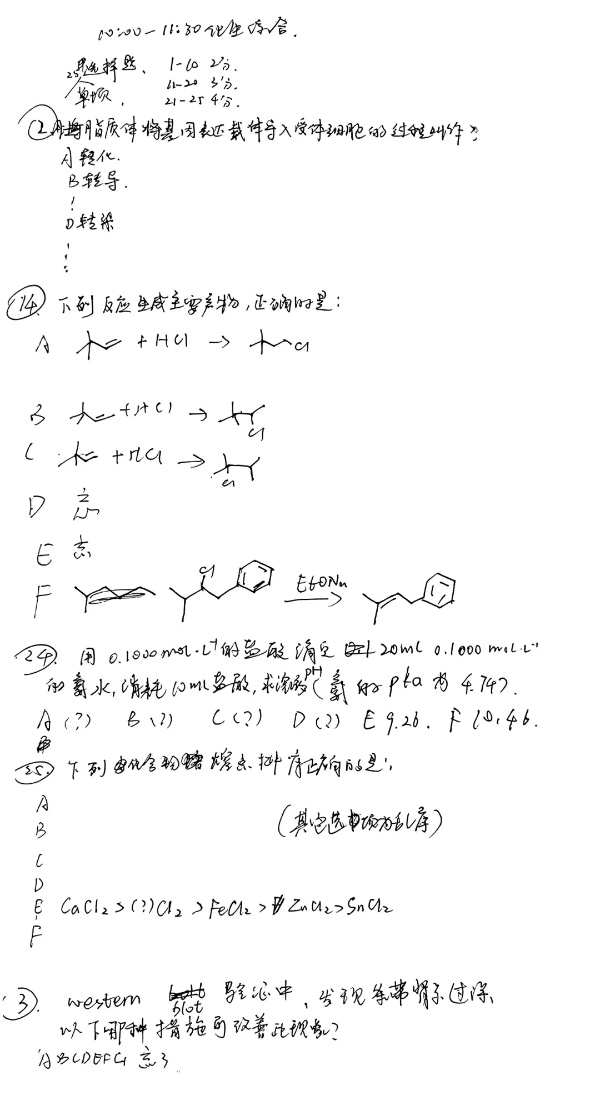 10:00-11:30 化生综合.
25个 选择题、 1-10 2'分.
单项. 11-20 3'分.
21-25 4'分.
② 用脂质体将基因表达载体导入受体细胞的过程叫作?
A 转化.
B 转导.
D 转染
⑭. 下列反应生成主要产物,正确的是:
A + HCl →
Cl
B + HCl →
Cl
C + HCl →
Cl
D 忘
E 忘
F Cl EtONa
㉔. 用 0.1000 mol·L⁻¹的盐酸滴定 20mL 0.1000 mol·L⁻¹
的氨水,消耗10mL盐酸,求溶液pH(氨的pka为4.74).
A(?) B(?) C(?) D(?) E 9.26. F 10.46.
㉕. 下列化合物熔点排序正确的是:
A
B (其它选项为乱序)
C
D
E CaCl2 > (?)Cl2 > FeCl2 > ZnCl2 > SnCl2
F
③. western blot 验证中,发现条带背景过深,
以下哪种措施可改善此现象?
ABCDEFG 忘了